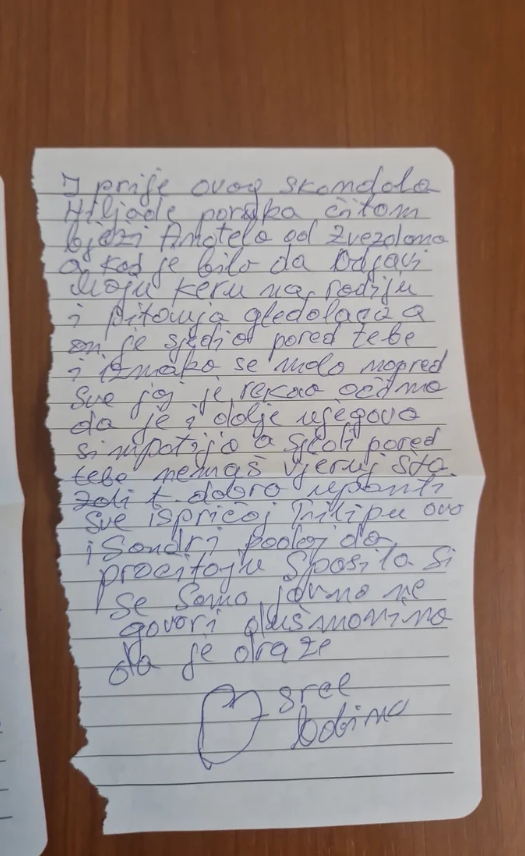 I prije ovog skandala
Hiljade poruka čitam
bježi Anatela od Zvezdana
a kad je bilo da
moju keru na radiju
i pitanja gledalaca a
on je sjedio pored tebe
i izmako se malo napred
sve joj je rekao očima
da je i dalje njegova
simpatija a sjedi pored
tebe nemaš vjeruj šta
dobro upanti
sve ispričaj Filipu ovo
i Sandri podaj da
procitaju Spasila si
se Samo javno ne
govori dušmanima
da je draže
srce
babina